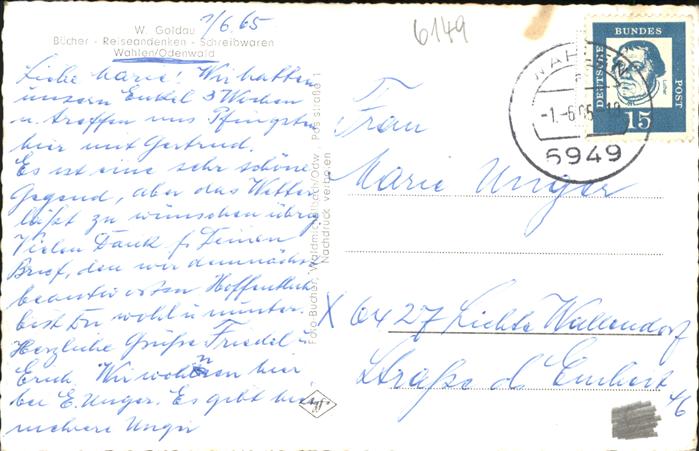 W. Goldau
1/6.65
Bücher - Reiseandenken - Schreibwaren
Wahlen/Odenwald
6149
Liebe Marie! Wir hatten
unsern Enkel 3 Wochen
u. treffen uns Pfingsten
hier mit Gertrud.
Es ist eine sehr schöne
Gegend, aber das Wetter
läßt zu wünschen übrig.
Vielen Dank f. Deinen
Brief, den wir demnächst
beantworten. Hoffentlich
bist Du wohl u. munter.
Herzliche Grüße Friedel u.
Erich. Wir wohnen hier
bei E. Unger. Es gibt hier
mehrere Unger
Foto-Bücher, Waldmichelbach/Odw., Poststraße 1
Nachdruck verboten
DEUTSCHE
BUNDES
POST
15
-1.-6.65
5949
Frau
Marie Unger
X 6427 Lichte Wallendorf
Straße d. Einheit
46